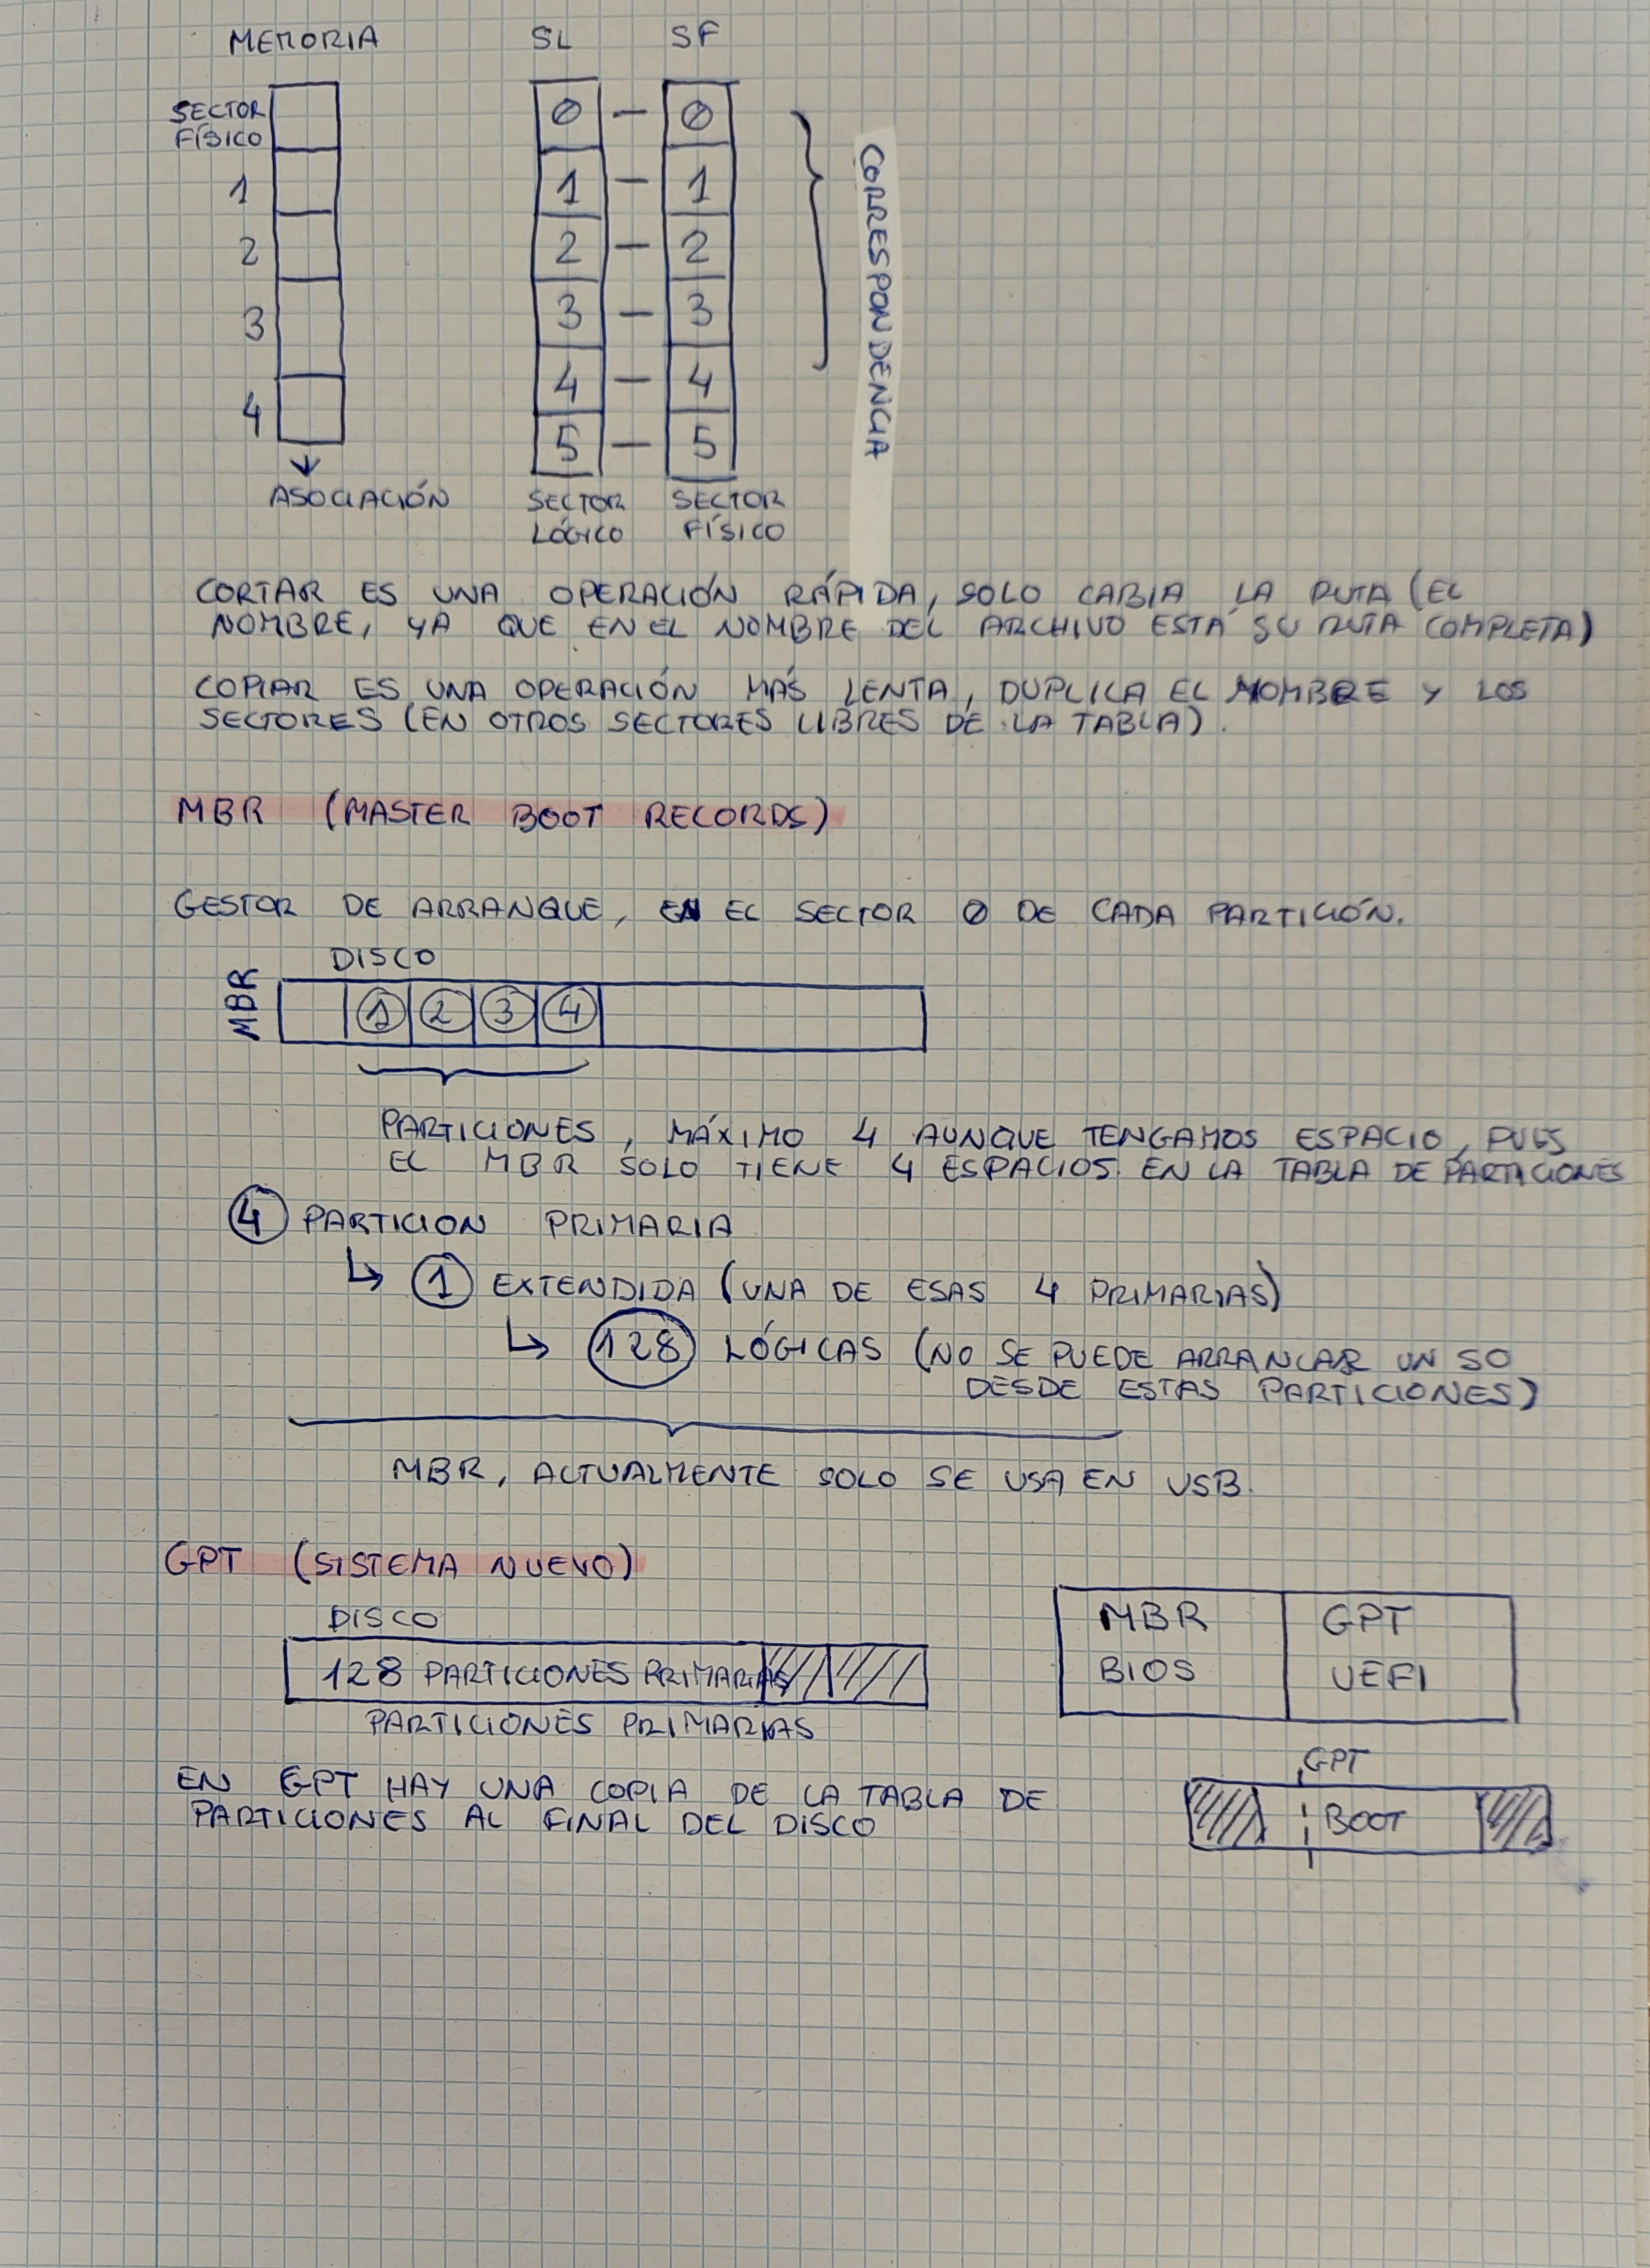 MEMORIA SL SF
SECTOR
FÍSICO
1
2
3
4
Ø - Ø
1 - 1
2 - 2
3 - 3
4 - 4
5 - 5
CORRESPONDENCIA
ASOCIACIÓN
SECTOR
LÓGICO
SECTOR
FÍSICO
CORTAR ES UNA OPERACIÓN RÁPIDA, SOLO CABIA LA RUTA (EL
NOMBRE, YA QUE EN EL NOMBRE DEL ARCHIVO ESTÁ SU RUTA COMPLETA)
COPIAR ES UNA OPERACIÓN MÁS LENTA, DUPLICA EL NOMBRE Y LOS
SECTORES (EN OTROS SECTORES LIBRES DE LA TABLA).
MBR (MASTER BOOT RECORDS)
GESTOR DE ARRANQUE, EN EL SECTOR Ø DE CADA PARTICIÓN.
DISCO
MBR
1 2 3 4
PARTICIONES, MÁXIMO 4 AUNQUE TENGAMOS ESPACIO, PUES
EL MBR SOLO TIENE 4 ESPACIOS EN LA TABLA DE PARTICIONES
4 PARTICION PRIMARIA
↳ 1 EXTENDIDA (UNA DE ESAS 4 PRIMARIAS)
↳ 128 LÓGICAS (NO SE PUEDE ARRANCAR UN SO
DESDE ESTAS PARTICIONES)
MBR, ACTUALMENTE SOLO SE USA EN USB.
GPT (SISTEMA NUEVO)
DISCO
128 PARTICIONES PRIMARIAS
PARTICIONES PRIMARIAS
MBR GPT
BIOS UEFI
EN GPT HAY UNA COPIA DE LA TABLA DE
PARTICIONES AL FINAL DEL DISCO
GPT
BOOT